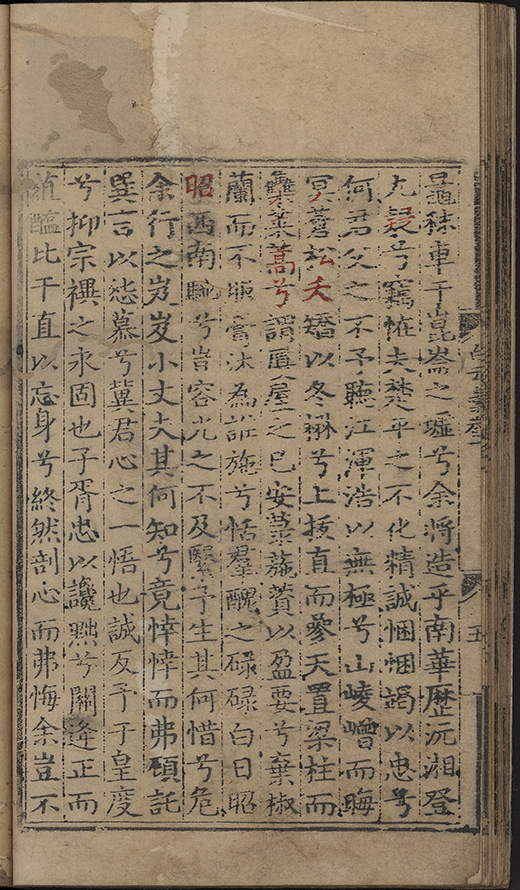 秣車于崑崙之墟兮余將造乎南華歷沅湘登
九疑兮竊怪夫楚平之不化精誠悃悃竭以忠兮
何君父之不予聽江渾浩以無極兮山崚嶒而晦
冥蒼松夭矯以冬榮兮上挾直而參天置梁柱而
蓬蒿兮謂厦屋之已安菉葹薋以盈要兮棄椒
蘭而不服當沫為誰施兮恬羣醜之碌碌白日昭
昭西南馳兮豈容光之不及緊予生其何惜兮危
余行之岌岌小丈夫其何知兮竟悻悻而弗顧託
巽言以恋慕兮冀君心之一悟也誠反予于皇度
兮抑宗禩之永固也子胥忠以讒㸃兮關逄正而
葅醢比干直以忘身兮終然剖心而弗悔余豈不
五